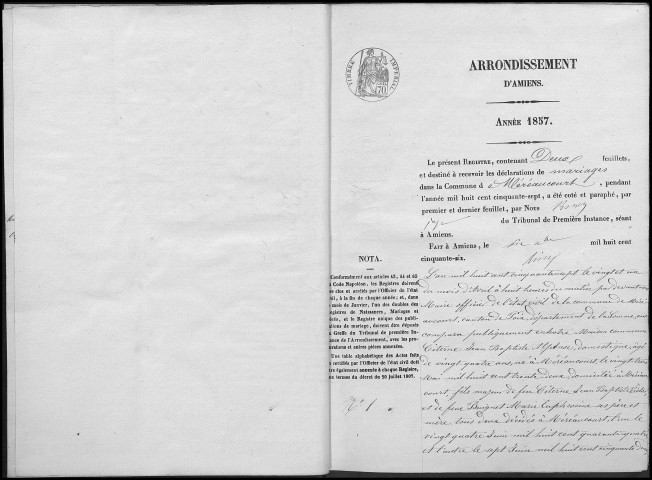 TIMBRE IMPERIAL
70
ARRONDISSEMENT
D'AMIENS.
ANNÉE 1857.
Le présent REGISTRE, contenant Deux feuillets,
et destiné à recevoir les déclarations de mariages
dans la Commune d e Méréaucourt, pendant
l'année mil huit cent cinquante-sept, a été coté et paraphé, par
premier et dernier feuillet, par Nous
juge du Tribunal de Première Instance, séant
à Amiens.
FAIT à Amiens, le six mil huit cent
cinquante-six.
NOTA.
Conformément aux articles 43, 44 et 63
Code Napoléon, les Registres doivent
clos et arrêtés par l'Officier de l'état
il, à la fin de chaque année; et, dans
mois de Janvier, l'un des doubles des
registres de Naissances, Mariages et
et le Registre unique des publi-
cations de mariage, doivent être déposés
Greffe du Tribunal de première Ins-
tance de l'Arrondissement, avec les pro-
curations et autres pièces annexées.
Une table alphabétique des Actes faits
certifiés par l'Officier de l'état civil doit
être également annexée à chaque Registre,
termes du décret du 20 juillet 1807.
N° 1
L'an mil huit cent cinquante sept le vingt et un
du mois d'Avril à huit heures du matin, par devant nous
Maire officier de l'état civil de la commune de Méré-
aucourt, canton de Poix, département de la Somme, ont
comparu publiquement en notre Maison commune
Citerne Jean Baptiste Ulphose, domestique, âgé
de vingt quatre ans, né à Méréaucourt, le vingt trois
Mai mil huit cent trente deux, domicilié à Méréau
court, fils majeur de feu Citerne Jean Baptiste
et de feue Buignet Marie Euphrosine ses père et
mère tous deux décédés à Méréaucourt, l'un le
vingt quatre Juin mil huit cent quarante quatre
et l'autre le sept Juin mil huit cent cinquante deux